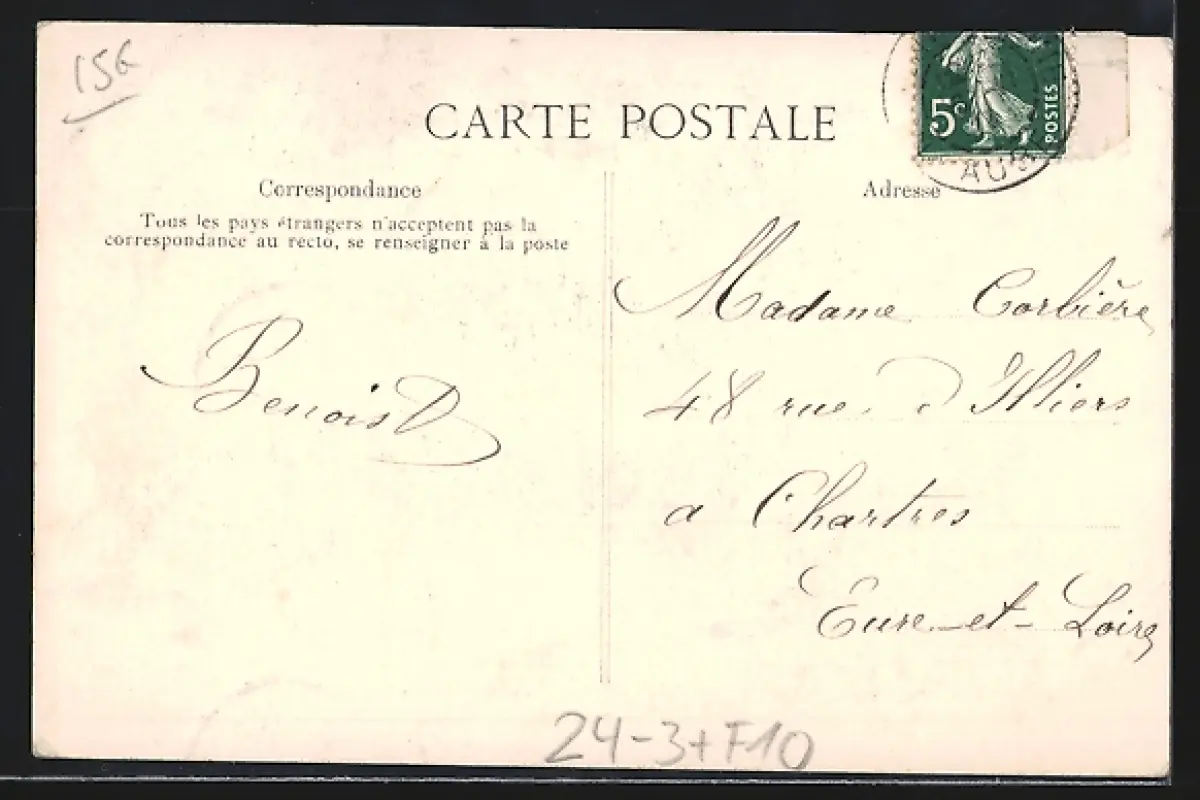 15€
CARTE POSTALE
5c
POSTES
Correspondance
Tous les pays étrangers n'acceptent pas la
correspondance au recto, se renseigner à la poste
Adresse
Benoist
Madame Corbière
48 rue d Illiers
a Chartres
Eure-et-Loire
24-3+F10